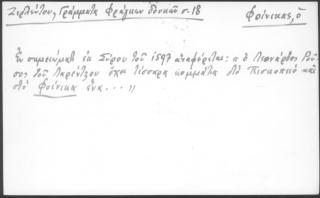 Ζερλέντου, Γράμματα Φράγκων δουκῶν σ. 18
Φοίνικας, ὁ
Ἐν σημειώματι ἐκ Σύρου τοῦ 1597 ἀναφέρεται: « ὁ Λεονάρδος Ρού-
σος τοῦ Λαρέντζου ἔχει τέσσερα κομμάτια στὸ Πισκοπειὸ καὶ
στὸ Φοίνικα ἕνα . . . »